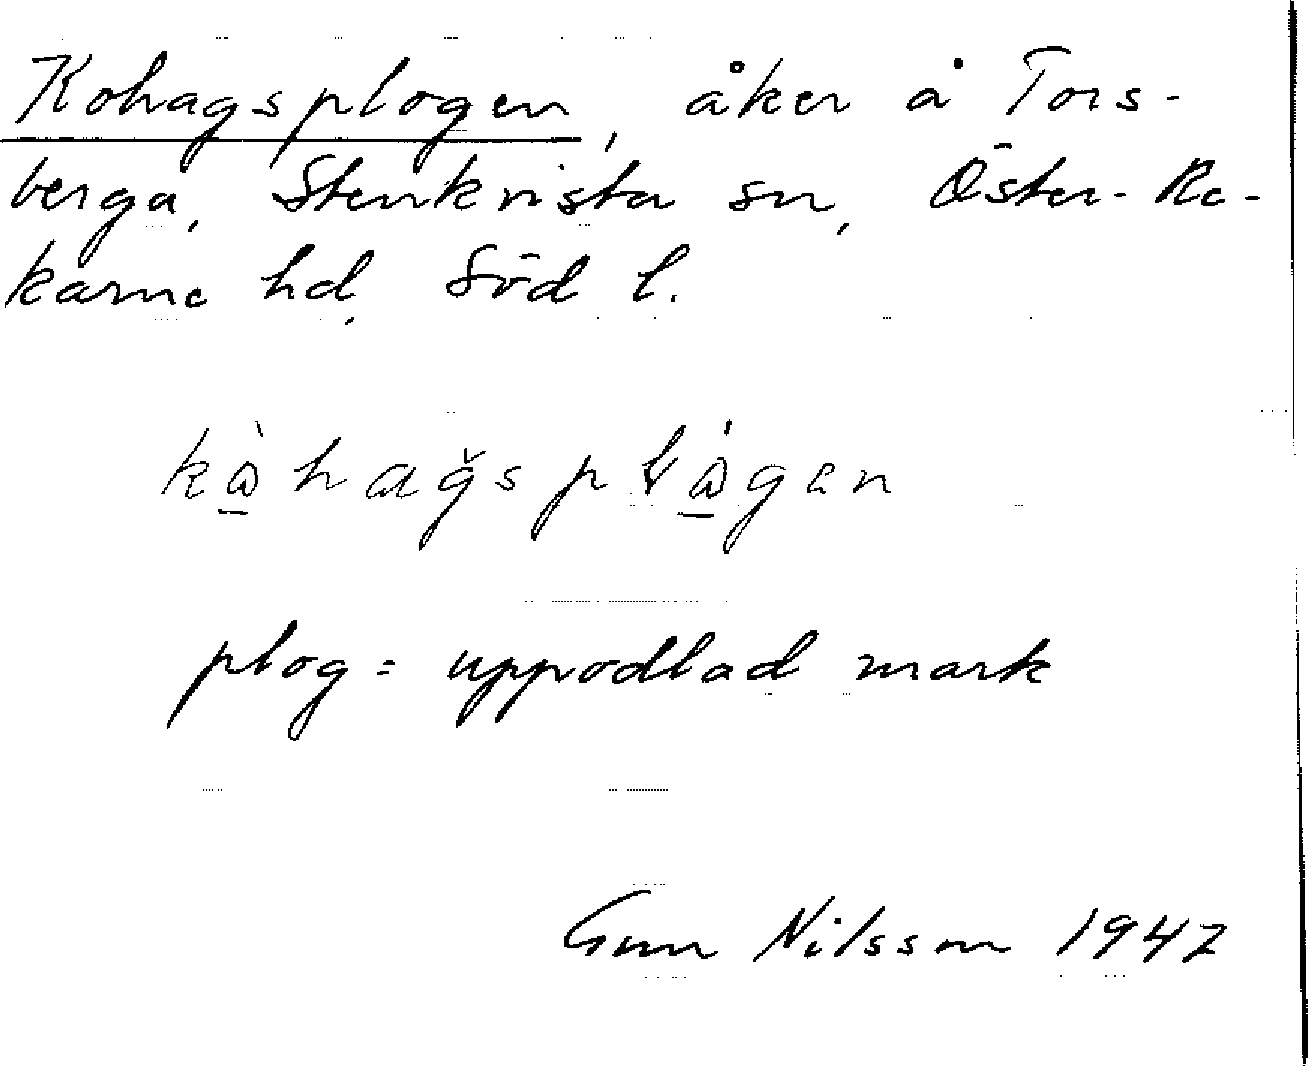 Kohagsplogen, åker å Tors-
berga, Stenkvista sn, Öster-Re-
karne hd, Söd l.
plog = uppodlad mark
Gun Nilsson 1947